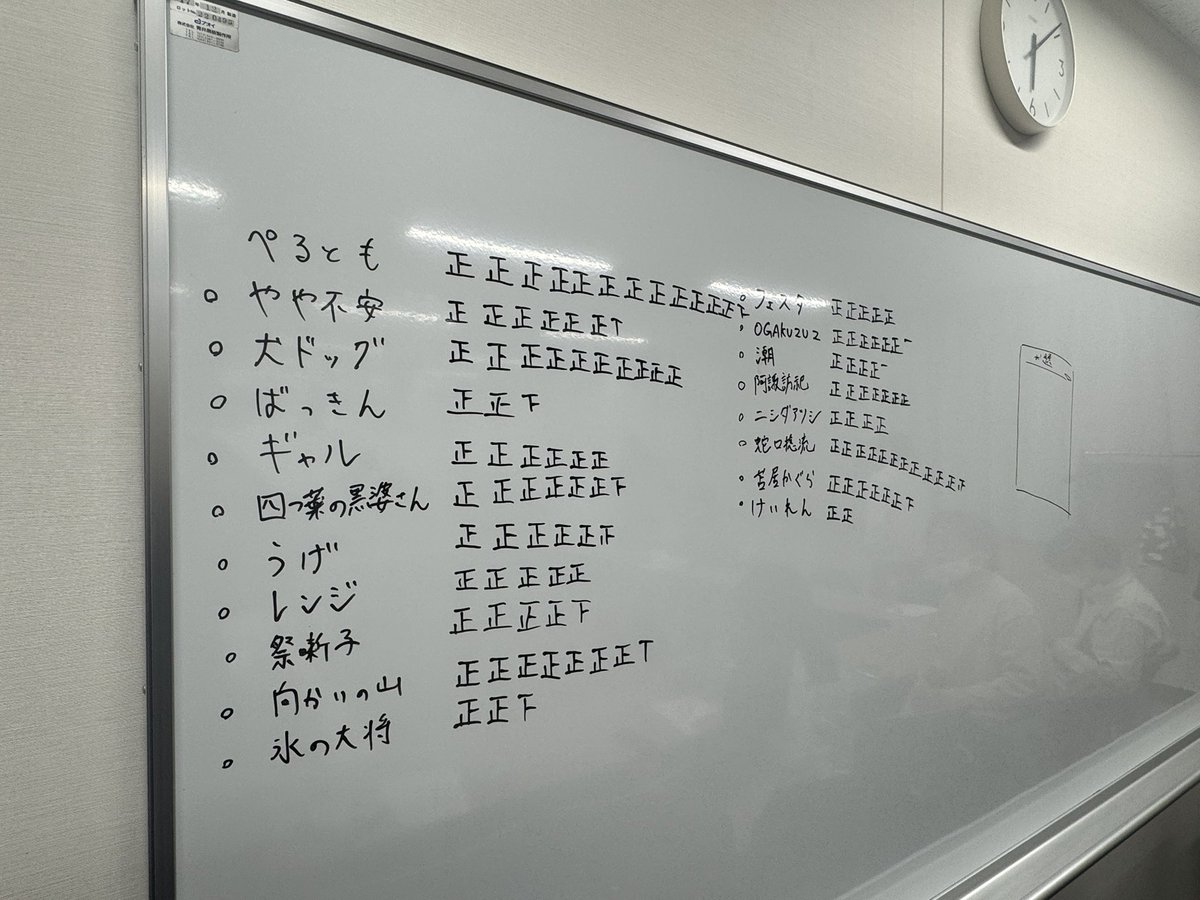 ぺるとも 正正正正正正正正正正正下
やや不安 正正正正正正T
犬ドッグ 正正正正正正正正正正
ばっきん 正正下
ギャル 正正正正正正
四つ葉の黒婆さん 正正正正正正下
うげ 正正正正正下
レンジ 正正正正正
祭囃子 正正正正下
向かいの山 正正正正正正正T
氷の大将 正正下
フェスタ 正正正正正
OGAKUZU2 正正正正正一
潮 正正正正一
阿諏訪祀 正正正正正正
ニシダアツシ 正正正正
蛇口捻流 正正正正正正正正正正下
芦屋かぐら 正正正正正正下
けいれん 正正
アオイ
株式会社 青井黒板製作所
3
6